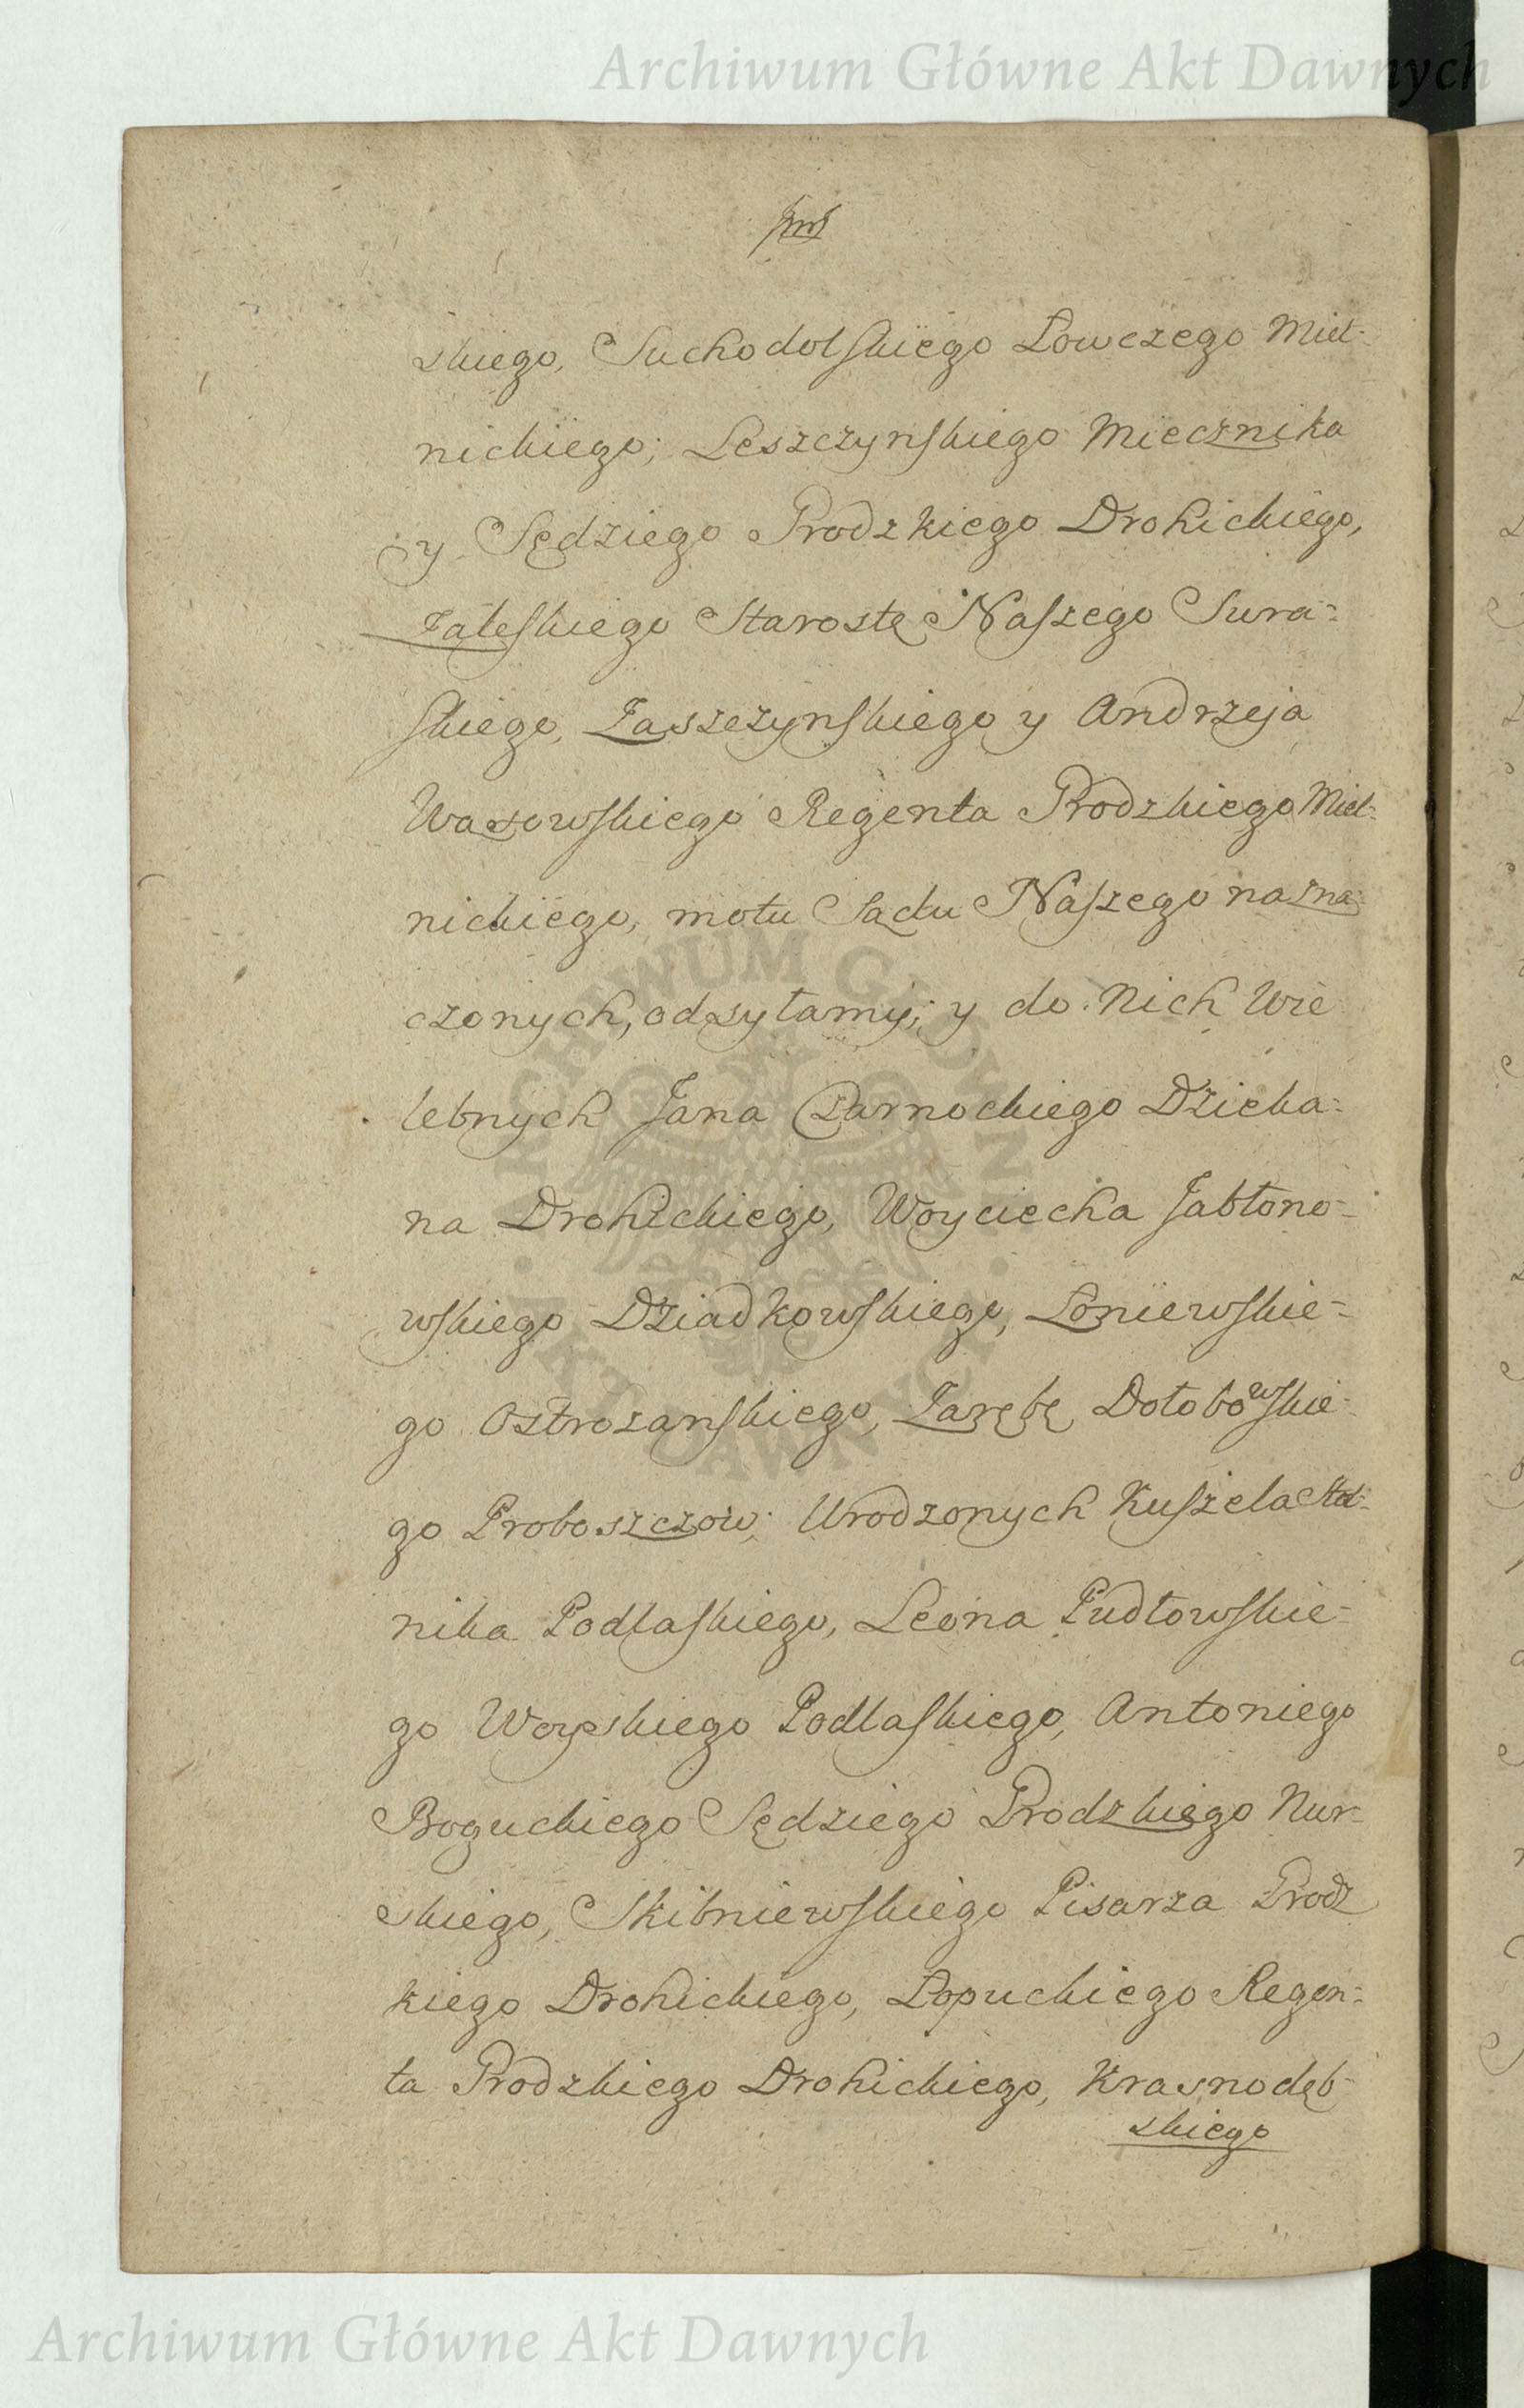 Archiwum Główne Akt Dawnych
skiego, Suchodolskiego Łowczego Miel=
nickiego; Leszczynskiego Miecznika
y Sędziego Grodzkiego Drohickiego,
Zaleskiego Starostę Naszego Sura=
skiego, Zaszczynskiego y Andrzeja
Wasowskiego Regenta Grodzkiego Miel=
nickiego, motu Sądu Naszego nazna=
czonych, odsyłamy; y do Nich Wie
lebnych Jana Czarnockiego Dzieka=
na Drohickiego, Woyciecha Jabłono=
wskiego Dziadkowskiego, Łoniewskie=
go Ostrozanskiego, Zarębę Dołobowskie=
go Proboszczow; Urodzonych Kuszela Stol=
nika Podlaskiego, Leona Pudłowskie=
go Woyskiego Podlaskiego, Antoniego
Boguckiego Sędziego Grodzkiego Nur=
skiego, Skibniewskiego Pisarza Grodz
kiego Drohickiego, Łopuckiego Regen=
ta Grodzkiego Drohickiego, Krasnodęb=
skiego
Archiwum Główne Akt Dawnych